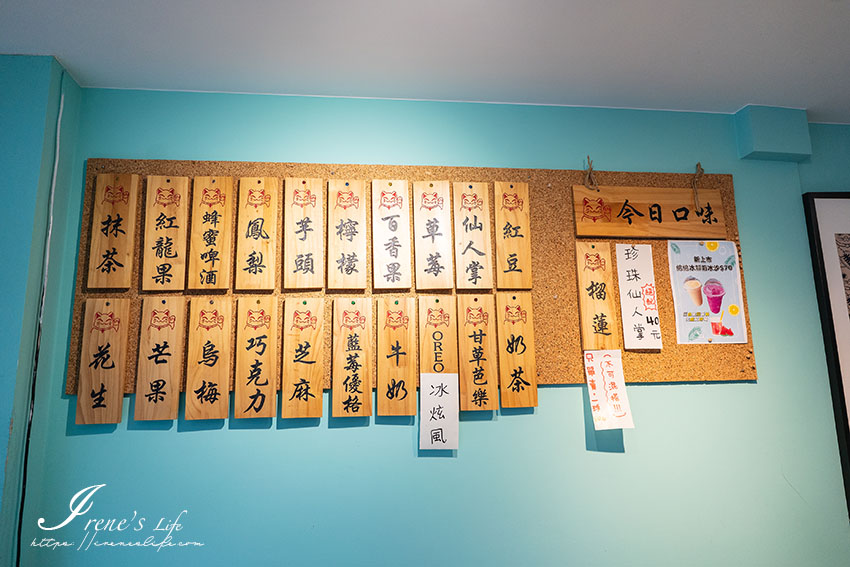 抹茶
紅龍果
蜂蜜啤酒
鳳梨
芋頭
檸檬
百香果
草莓
仙人掌
紅豆
花生
芒果
烏梅
巧克力
芝麻
藍莓優格
牛奶
OREO
冰炫風
甘草芭樂
奶茶
今日口味
榴蓮
珍珠仙人掌
40元
新上市
Irene's Life